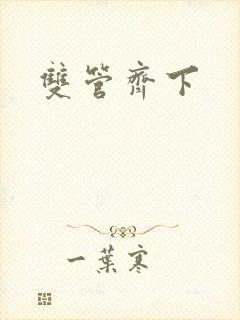 雙管齊下
一葉寒